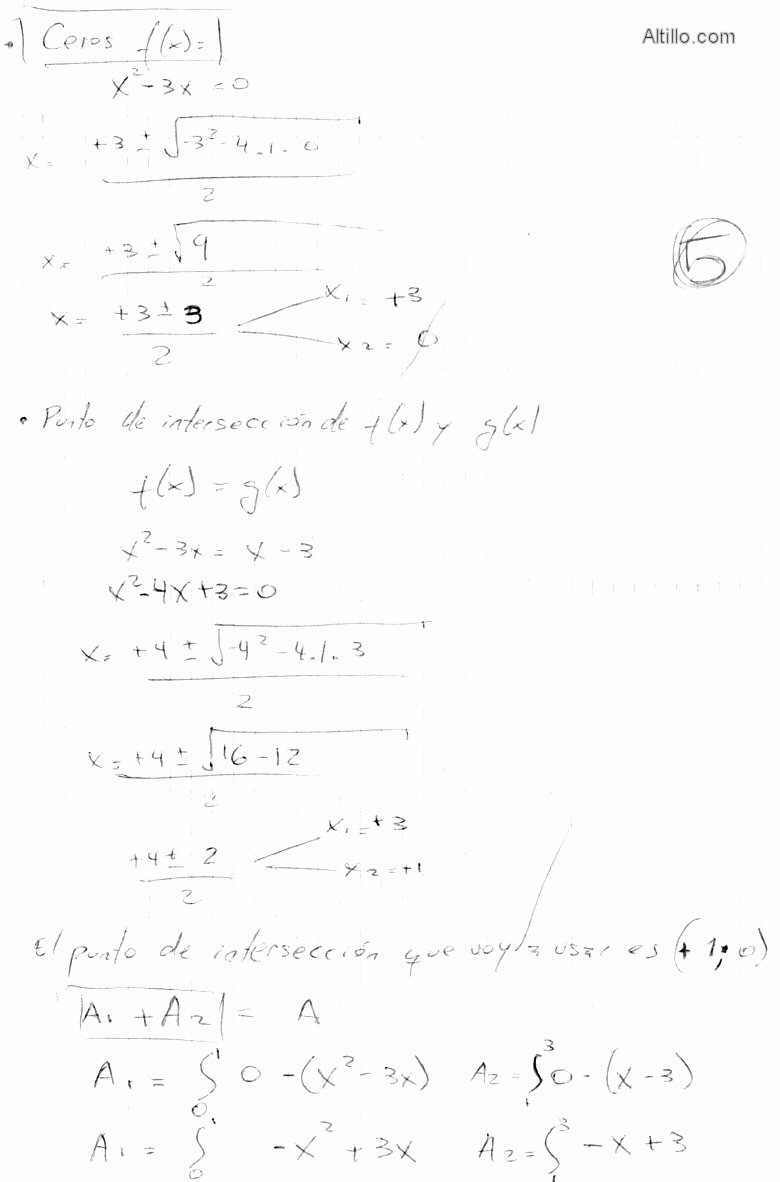 Altillo.com
• Ceros f(x)=
x² - 3x = 0
x = +3 ± √-3² - 4.1.0 / 2
x = +3 ± √9 / 2
5
x = +3 ± 3 / 2
x₁ = +3
x₂ = 0
• Punto de intersección de f(x) y g(x)
f(x) = g(x)
x² - 3x = x - 3
x² - 4x + 3 = 0
x = +4 ± √-4² - 4.1.3 / 2
x = +4 ± √16 - 12 / 2
+4 ± 2 / 2
x₁ = +3
x₂ = +1
El punto de intersección que voy a usar es (+1; 0)
|A₁ + A₂| = A
A₁ = ∫₀¹ 0 - (x² - 3x) A₂ = ∫₁³ 0 - (x - 3)
A₁ = ∫₀¹ -x² + 3x A₂ = ∫₁³ -x + 3